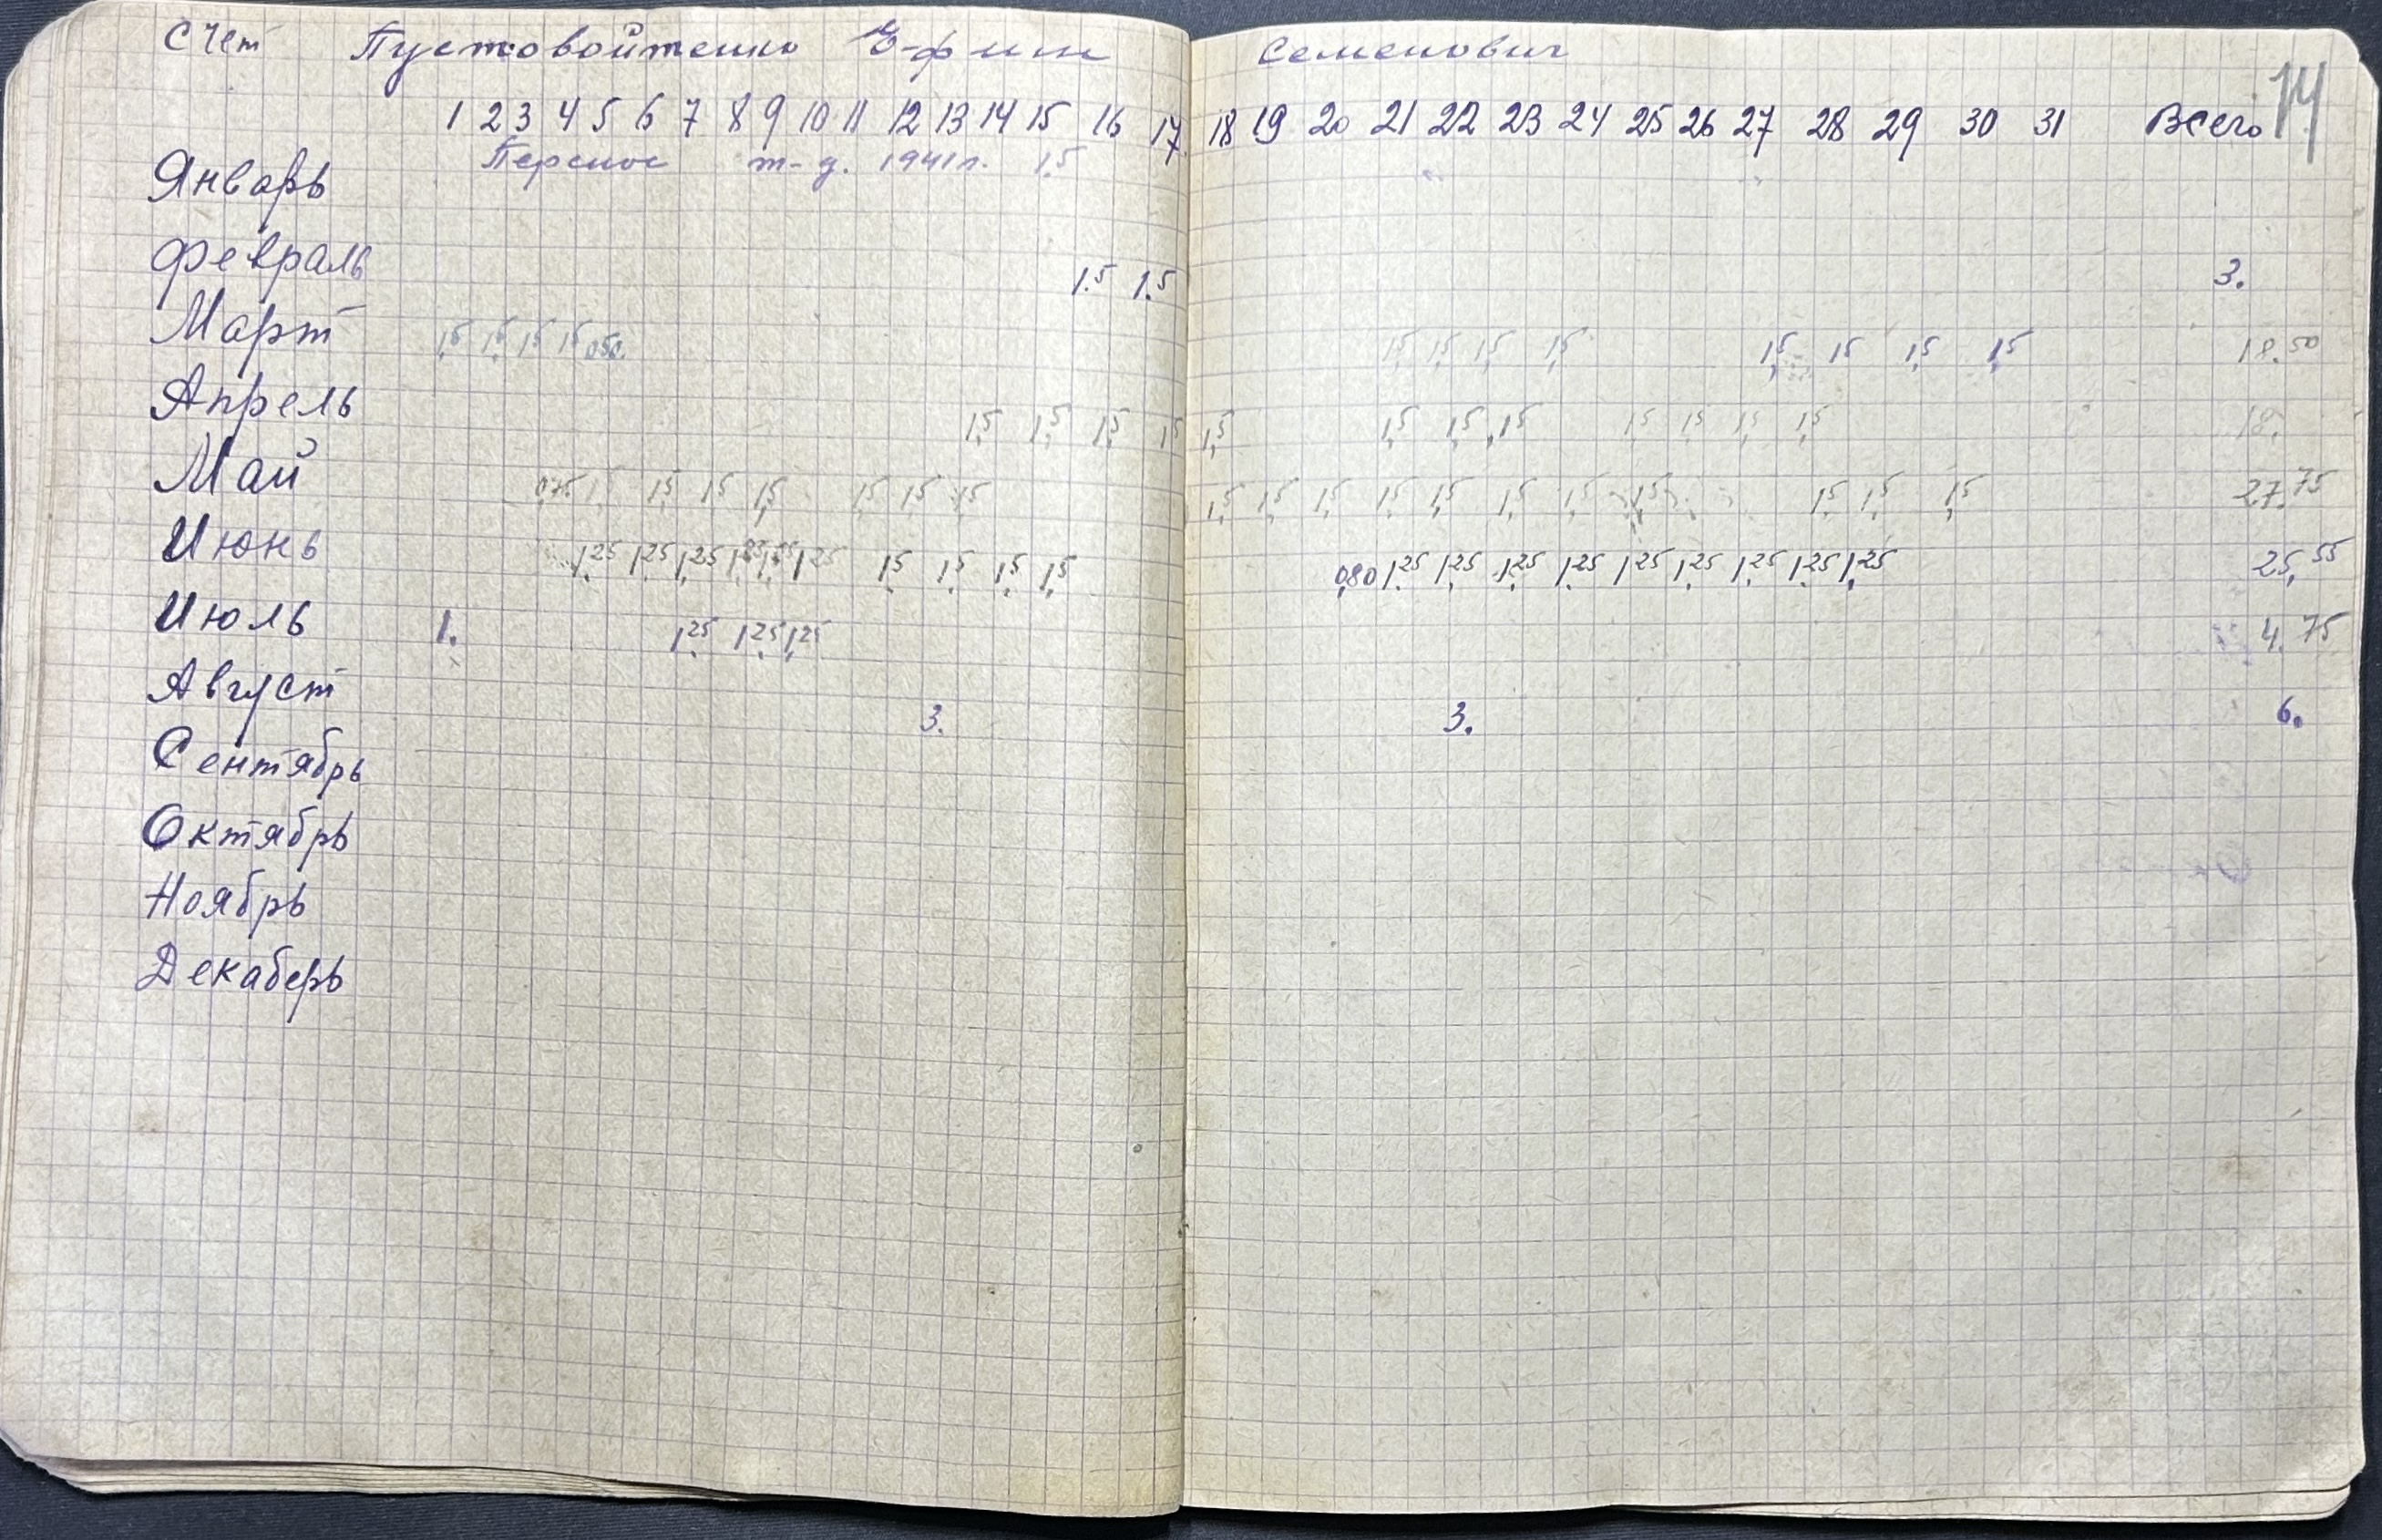 Счет Пустовойтенко Ефим Семенович 14
1 2 3 4 5 6 7 8 9 10 11 12 13 14 15 16 17 18 19 20 21 22 23 24 25 26 27 28 29 30 31 Всего
Перенос т-д. 1941 г. 1.5
Январь
Февраль 1.5 1.5 3.
Март 1,5 1,5 1,5 1,5 0,50 1,5 1,5 1,5 1,5 1,5 1,5 1,5 1,5 18.50
Апрель 1,5 1,5 1,5 1,5 1,5 1,5 1,5 1,5 1,5 1,5 1,5 1,5 18.
Май 0,75 1,5 1,5 1,5 1,5 1,5 1,5 1,5 1,5 1,5 1,5 1,5 1,5 1,5 1,5 1,5 1,5 1,5 27.75
Июнь 1,25 1,25 1,25 1,25 1,5 1,5 1,5 1,5 0,80 1,25 1,25 1,25 1,25 1,25 1,25 1,25 1,25 1,25 25,55
Июль 1. 1,25 1,25 1,25 4.75
Август 3. 3. 6.
Сентябрь
Октябрь
Ноябрь
Декаберь